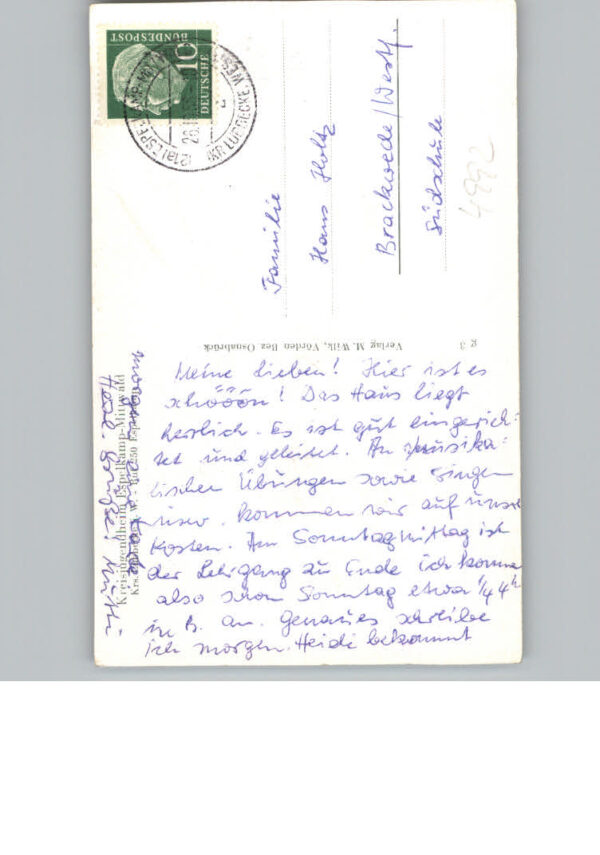 DEUTSCHE
BUNDESPOST
10
(21a) ESPELKAMP-MITTWALD
(KR LÜBBECKE, WESTF)
Familie
Hans Holtz
Brackwede/Westf.
Südschule
4992
g 3 Verlag M. Wilk, Vörden Bez. Osnabrück
Kreisjugendheim Espelkamp-Mittwald
Krs. Lübbecke
Meine Lieben! Hier ist es
schööön! Das Haus liegt
herrlich. Es ist gut eingerich-
tet und geleitet. An musika-
lischen Übungen sowie Singen
usw. kommen wir auf unsere
Kosten. Am Sonntagmittag ist
der Lehrgang zu Ende ich komme
also schon Sonntag etwa 1/4 4h
in B. an. Genaues schreibe
ich morgen. Heidi bekommt
Herzl. Grüße! Mutti